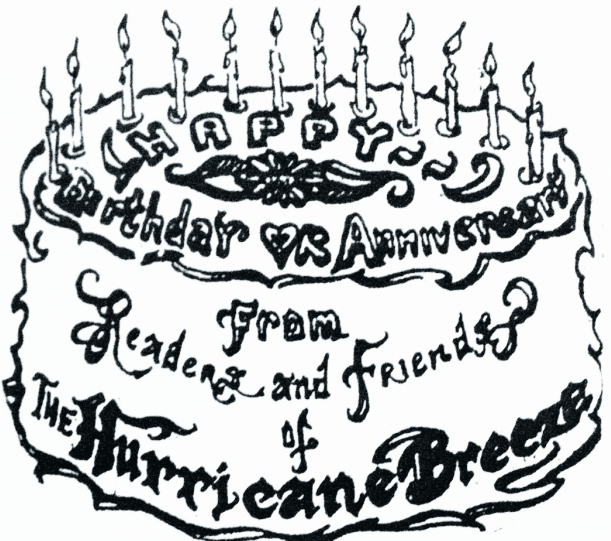 HAPPY
Birthday OR Anniversary
From
Readers and Friends
of
THE Hurricane Breeze